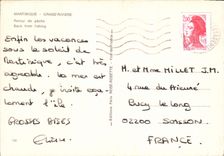 MARTINIQUE - GRAND'RIVIERE
Retour de pêche
Back from fishing
Enfin les vacances
sous le soleil de
Martinique, c'est très
agréable. La mer est
chaude, j'espère que
l'île.
GROSSES BISES
M. et Mme MILLET J.M.
4 rue du
Bucy le Long
02200 SOISSON
FRANCE